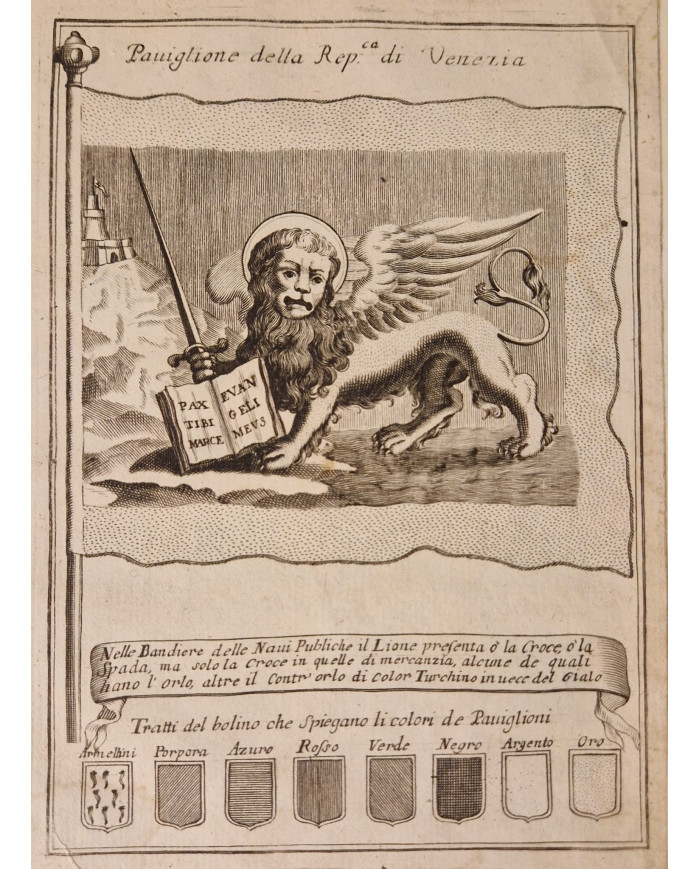 Pauiglione della Rep.ca di Venezia
PAX EVAN
TIBI GELI
MARCE MEVS
Nelle Bandiere delle Naui Publiche il Lione presenta ò la Croce, ò la
Spada, ma solo la Croce in quelle di mercanzia, alcune de quali
hano l'Orlo, altre il Contr'orlo di color Turchino in uece del Gialo
Tratti del bolino che spiegano li colori de Pauiglioni
Armellini Porpora Azuro Rosso Verde Negro Argento Oro